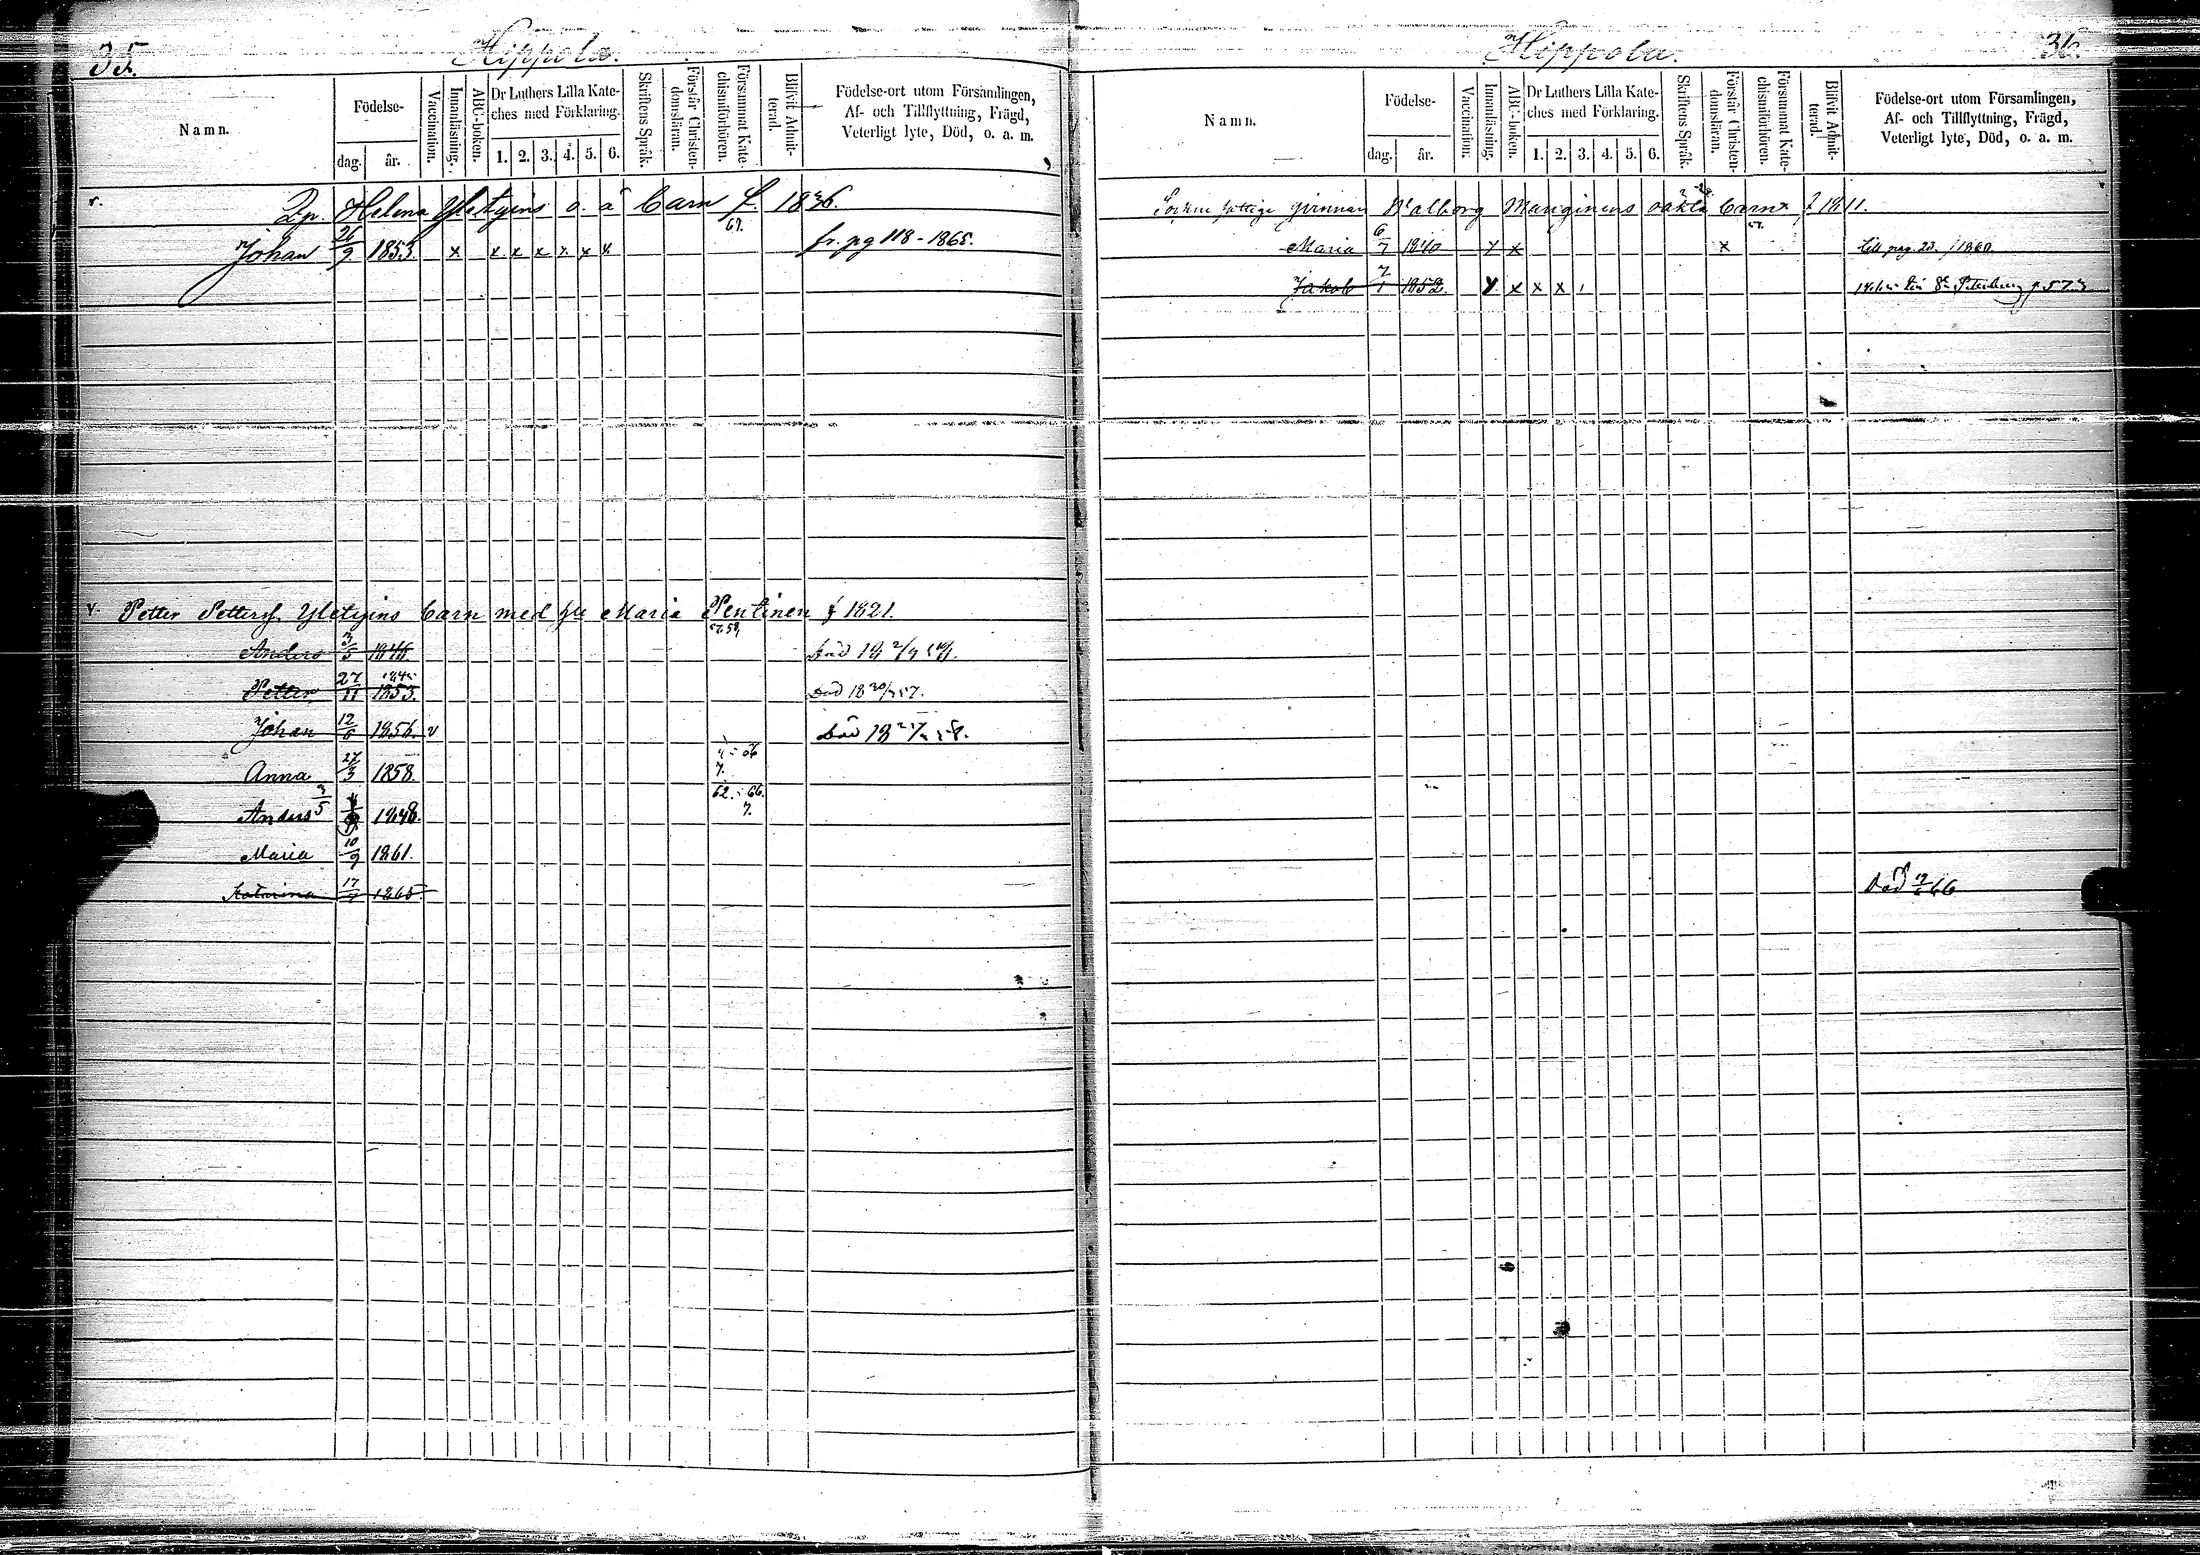 35.
Hippola.
Namn.
Födelse-
dag. år.
Vaccination.
Innanläsning.
ABC-boken.
Dr Luthers Lilla Kate-
ches med Förklaring.
1. 2. 3. 4. 5. 6.
Skriftens Språk.
Förstår Christen-
domsläran.
Försummat Kate-
chismiförhören.
Blifvit Admit-
terad.
Födelse-ort utom Församlingen,
Af- och Tillflyttning, Frägd,
Veterligt lyte, Död, o. a. m.
Helena Yletyins o. ä barn f. 1836.
67.
Johan 26/9 1853 x x x x x x x fr. pg 118 - 1865.
v. Petter Petterss. Yletyins barn med hu Maria Pentinen f 1821.
Anders 3/5 Död
Petter 27/11 1853. Död
Johan 12/6 1856. v Död
Anna 27/3 1858
62.-66.
7.
Anders 3/5 1848.
Maria 10/9 1861.
Katarina 17 1865
36.
Hippola.
Namn.
Födelse-
dag. år.
Vaccination.
Innanläsning.
ABC-boken.
Dr Luthers Lilla Kate-
ches med Förklaring.
1. 2. 3. 4. 5. 6.
Skriftens Språk.
Förstår Christen-
domsläran.
Försummat Kate-
chismiförhören.
Blifvit Admit-
terad.
Födelse-ort utom Församlingen,
Af- och Tillflyttning, Frägd,
Veterligt lyte, Död, o. a. m.
Sockne fattige qvinnan Walborg Manginens oäkta barn f 1811.
57.
Maria 6/7 1840 x x x till pag. 23. 1860.
Jakob 7/1 1852. x x x x S:t Petersburg p 573
Död 66